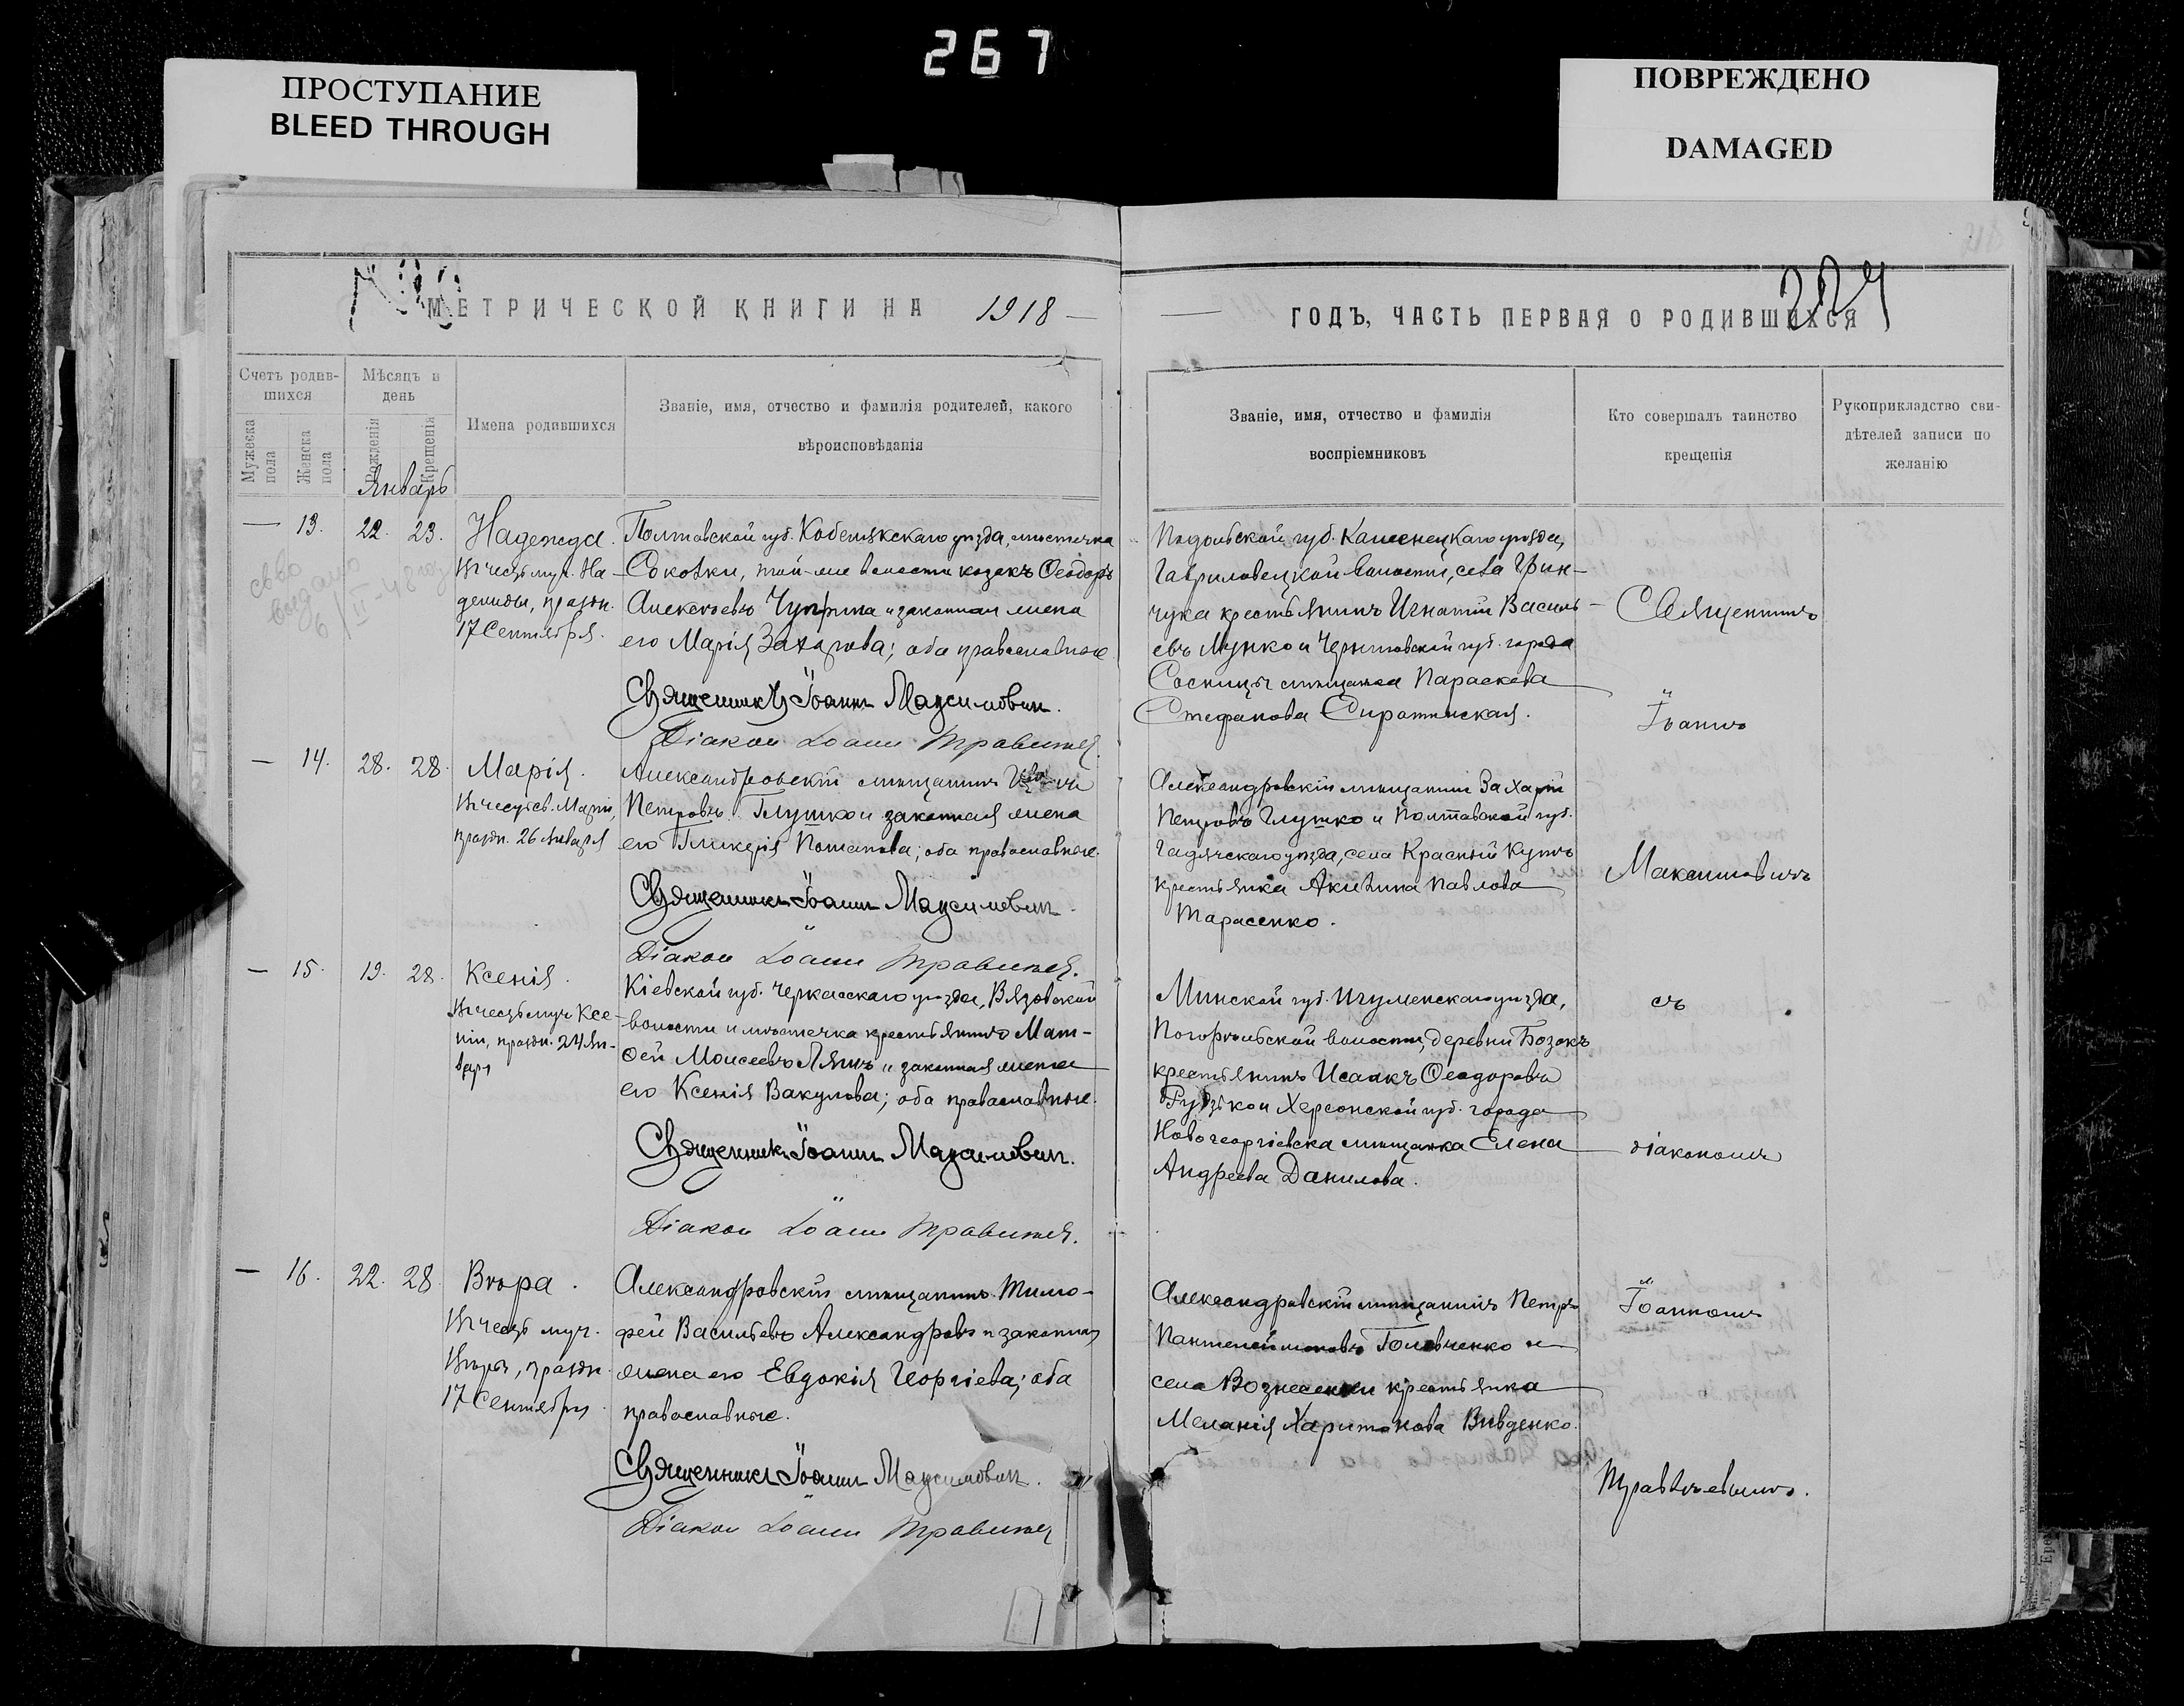 267
ПРОСТУПАНИЕ
BLEED THROUGH
ПОВРЕЖДЕНО
DAMAGED
МЕТРИЧЕСКОЙ КНИГИ НА 1918
ГОДЪ, ЧАСТЬ ПЕРВАЯ О РОДИВШИХСЯ
Счетъ родив-
шихся
Мужеска пола
Женска пола
Мѣсяцъ и
день
Рожденія
Крещенія
Январь
Имена родившихся
Званіе, имя, отчество и фамилія родителей, какого
вѣроисповѣданія
Званіе, имя, отчество и фамилія
воспріемниковъ
Кто совершалъ таинство
крещенія
Рукоприкладство сви-
дѣтелей записи по
желанію
— 13. 22. 23. Надежда.
Въ честь муч. На-
дежды, праздн.
17 Сентября.
Полтавской губ. Кобелякскаго уѣзда, мѣстечка
Соколки, той-же волости козакъ Ѳеодоръ
Алексѣевъ Чуприна и законная жена
его Марія Захарова; оба православные
Священникъ Іоаннъ Максимович.
Діакон Іоанн
Подольской губ. Каменецкаго уѣзда,
Гавриловецкой волости, села Грин-
чука крестьянинъ Игнатій Василь-
евъ Лунко и Черниговской губ. города
Сосницы мѣщанка Параскева
Стефанова Сиротинская.
— 14. 28. 28. Марія.
Въ честь св. Маріи,
праздн. 26 Января
Александровскій мѣщанинъ
Петровъ Глушко и законная жена
его Гликерія Потапова; оба православные.
Священникъ Іоаннъ Максимович.
Діакон Іоанн
Александровскій мѣщанинъ Захарій
Петровъ Глушко и Полтавской губ.
Гадячскаго уѣзда, села Красный Кутъ
крестьянка Акилина Павлова
Тарасенко.
— 15. 19. 28. Ксенія.
Въ честь муч Ксе-
ніи, праздн. 24 Ян-
варя
Кіевской губ. Черкасскаго уѣзда, Вязовской
волости и мѣстечка крестьянинъ Мат-
ѳей Моисеевъ Ляшъ и законная жена
его Ксенія Вакулова; оба православные.
Священникъ Іоаннъ Максимович.
Діакон Іоанн
Минской губ. Игуменскаго уѣзда,
Погорѣльской волости, деревни Бозокъ
крестьянинъ Исаакъ Ѳеодоровъ
и Херсонской губ. города
Новогеоргіевска мѣщанка Елена
Андреева Данилова.
— 16. 22. 28. Вѣра.
Въ честь муч.
Вѣры, праздн.
17 Сентября
Александровскій мѣщанинъ Тимо-
фей Васильевъ Александровъ и законная
жена его Евдокія Георгіева; оба
православные.
Священникъ Іоаннъ Максимович.
Діакон Іоанн
Александровскій мѣщанинъ Петръ
Пантелеймоновъ Головченко и
села Вознесенки крестьянка
Меланія Харитонова Вивденко.
Священникъ
Іоаннъ
Максимовичъ
съ
діакономъ
Іоанномъ